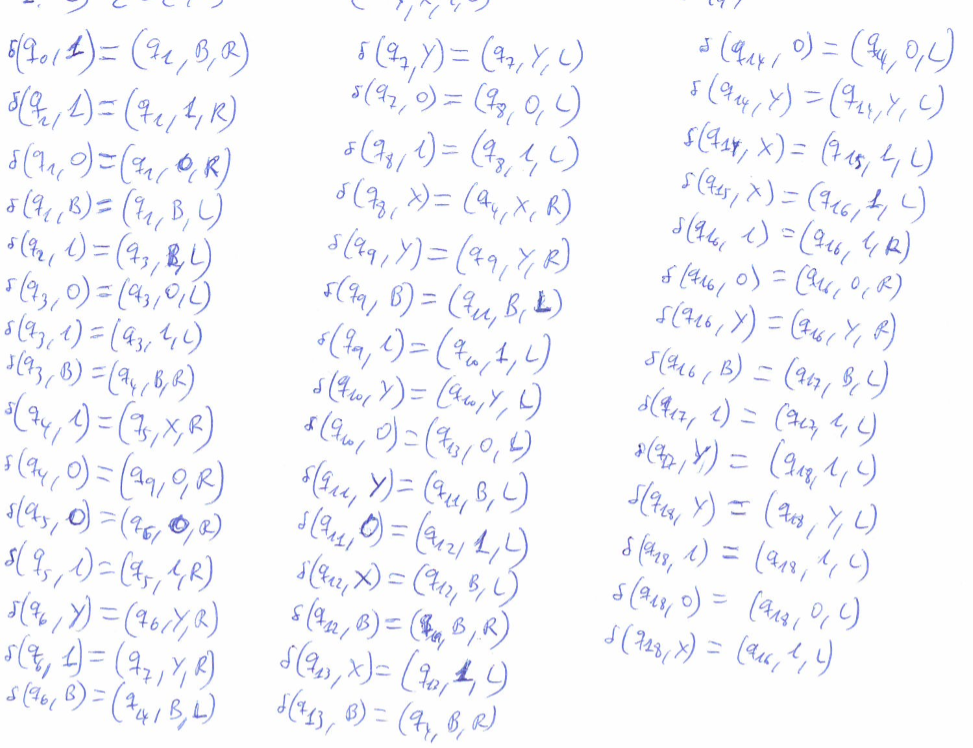 δ(q0, 1) = (q1, B, R)
δ(q1, 1) = (q1, 1, R)
δ(q1, 0) = (q1, 0, R)
δ(q1, B) = (q1, B, L)
δ(q2, 1) = (q3, B, L)
δ(q3, 0) = (q3, 0, L)
δ(q3, 1) = (q3, 1, L)
δ(q3, B) = (q4, B, R)
δ(q4, 1) = (q5, X, R)
δ(q4, 0) = (q9, 0, R)
δ(q5, 0) = (q6, 0, R)
δ(q5, 1) = (q5, 1, R)
δ(q6, Y) = (q6, Y, R)
δ(q6, 1) = (q7, Y, R)
δ(q6, B) = (q14, B, L)
δ(q7, Y) = (q7, Y, L)
δ(q7, 0) = (q8, 0, L)
δ(q8, 1) = (q8, 1, L)
δ(q8, X) = (q4, X, R)
δ(q9, Y) = (q9, Y, R)
δ(q9, B) = (q11, B, L)
δ(q9, 1) = (q10, 1, L)
δ(q10, Y) = (q10, Y, L)
δ(q10, 0) = (q13, 0, L)
δ(q11, Y) = (q11, B, L)
δ(q11, 0) = (q12, 1, L)
δ(q12, X) = (q12, B, L)
δ(q12, B) = ( B, R)
δ(q13, X) = (q13, 1, L)
δ(q13, B) = (q4, B, R)
δ(q14, 0) = (q14, 0, L)
δ(q14, Y) = (q14, Y, L)
δ(q14, X) = (q15, 1, L)
δ(q15, X) = (q16, 1, L)
δ(q16, 1) = (q16, 1, R)
δ(q16, 0) = (q16, 0, R)
δ(q16, Y) = (q16, Y, R)
δ(q16, B) = (q17, B, L)
δ(q17, 1) = (q17, 1, L)
δ(q17, Y) = (q18, 1, L)
δ(q18, Y) = (q18, Y, L)
δ(q18, 1) = (q18, 1, L)
δ(q18, 0) = (q18, 0, L)
δ(q18, X) = (q16, 1, L)